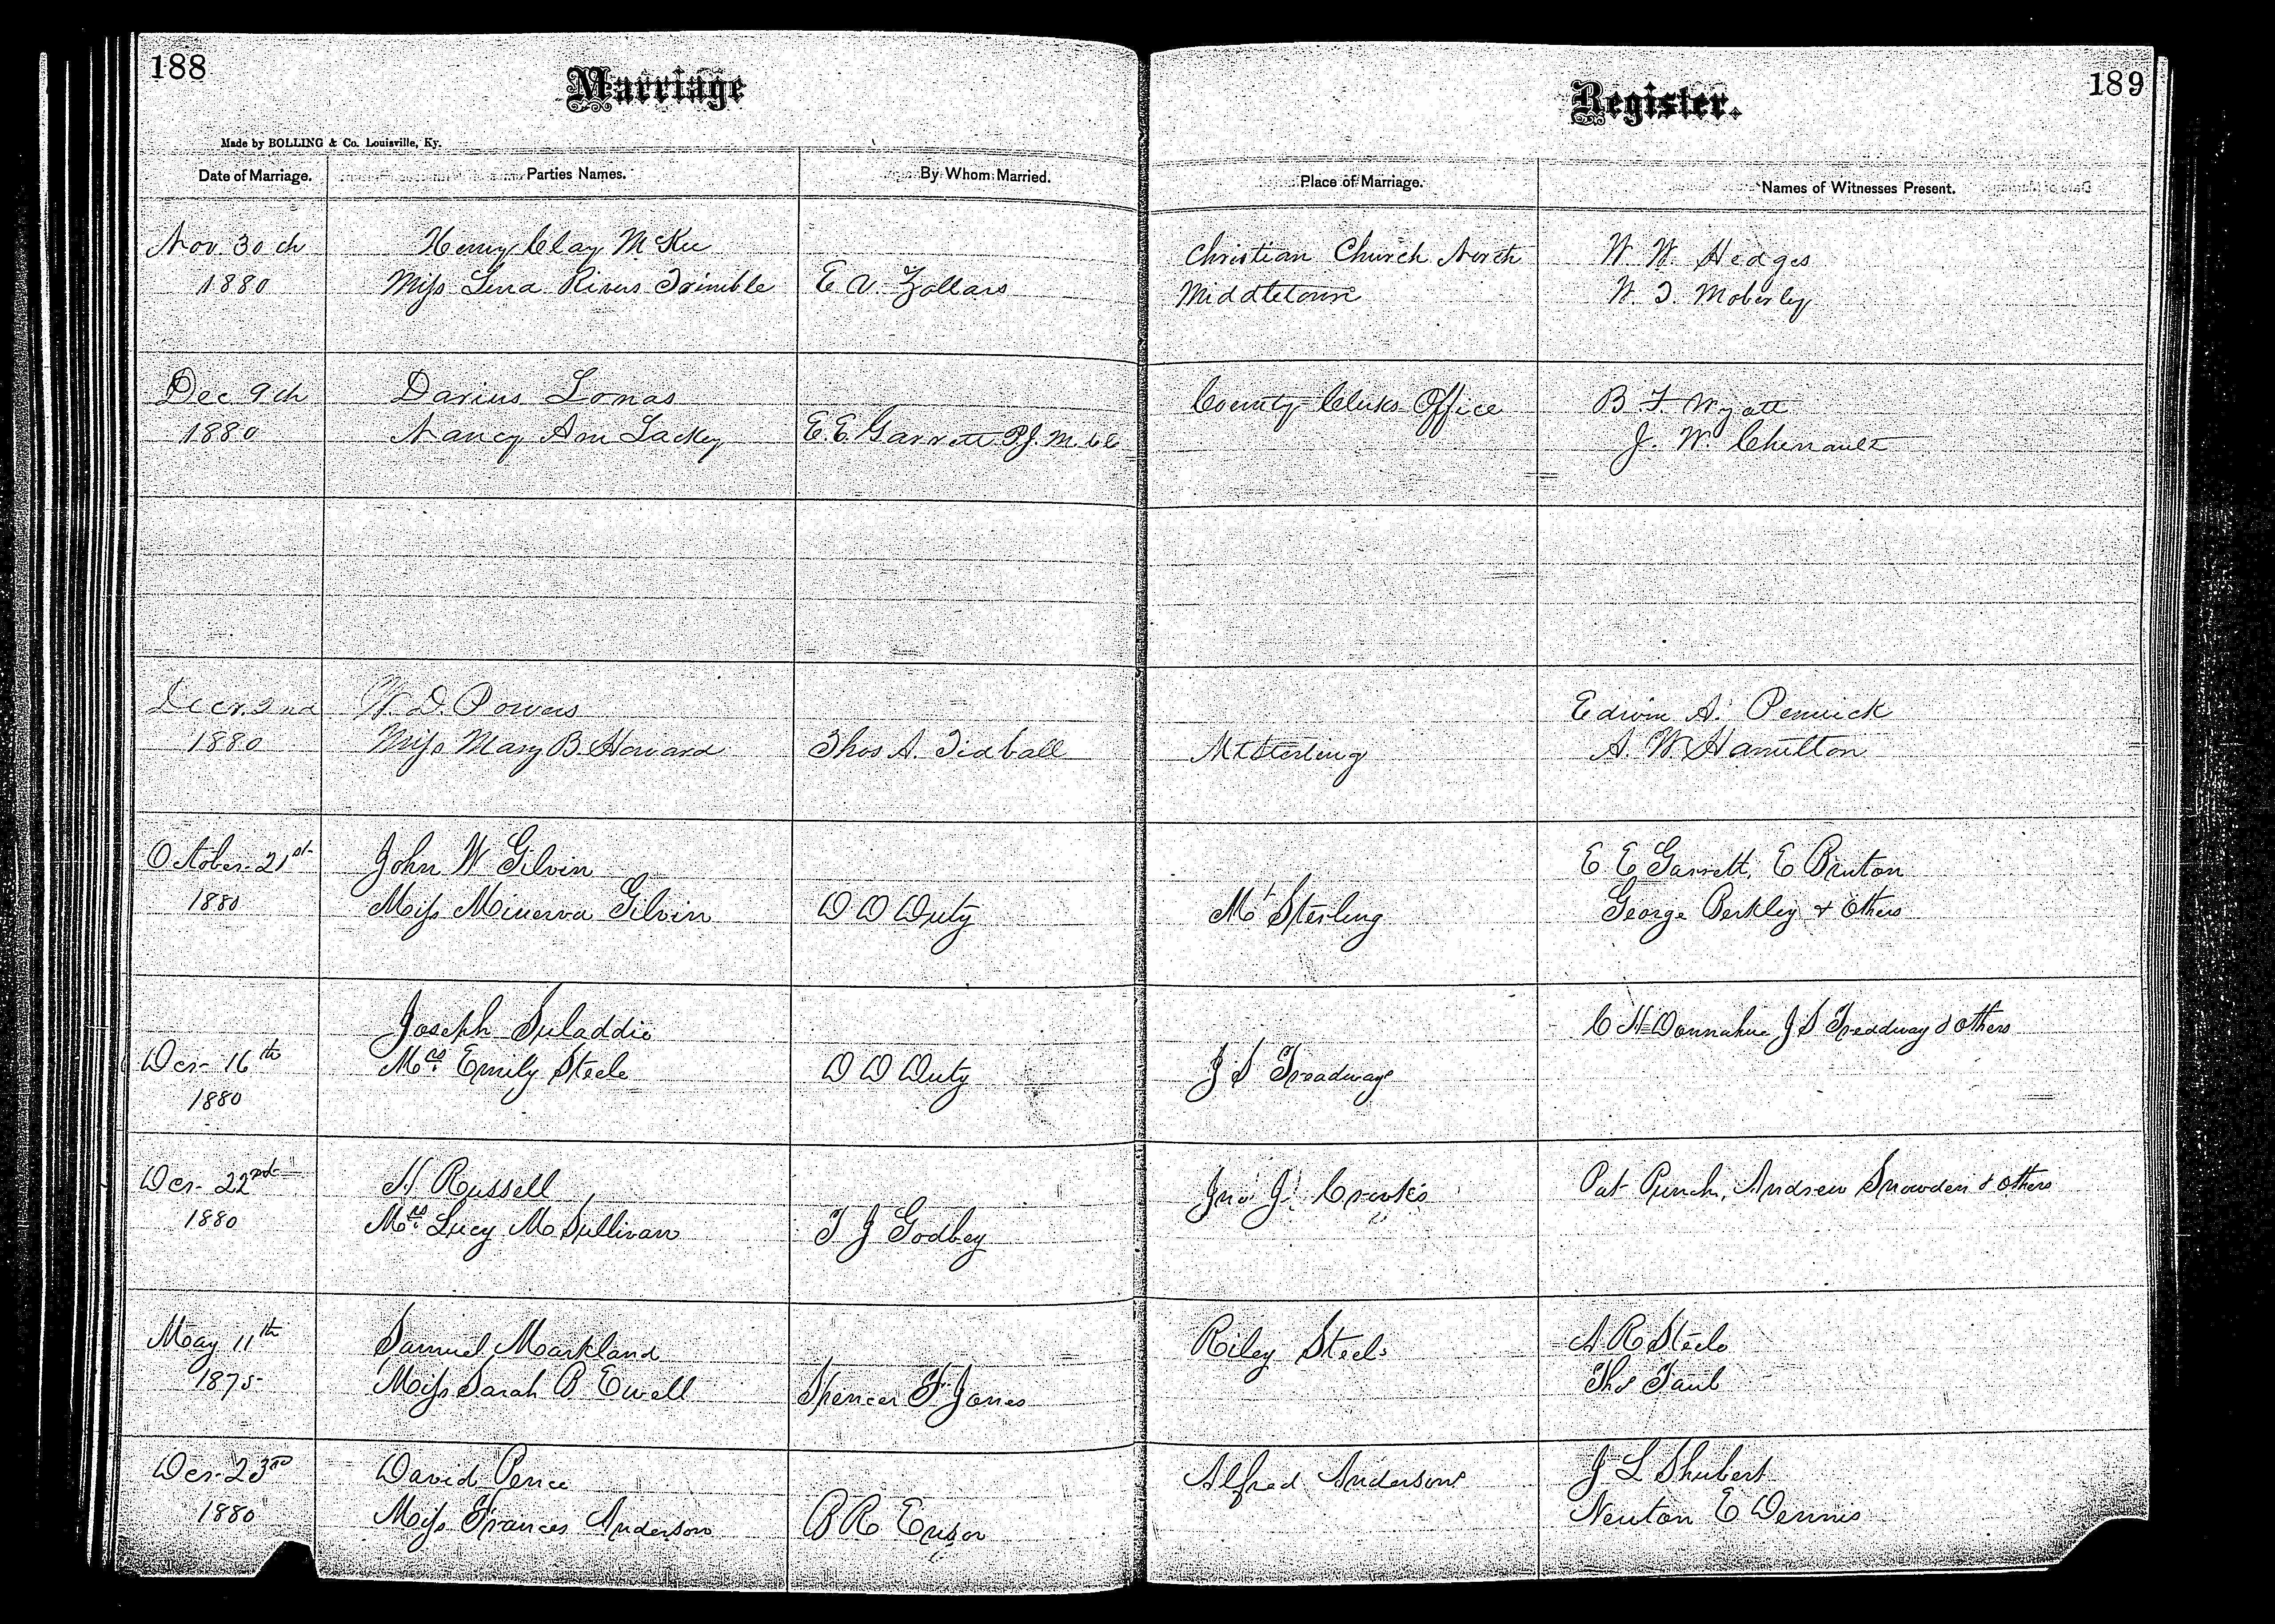 188
Marriage
Register.
189
Made by BOLLING & Co. Louisville, Ky.
Date of Marriage.
Parties Names.
By Whom Married.
Place of Marriage.
Names of Witnesses Present.
Nov. 30th
1880
Henry Clay McKee
Miss Lena Rivers Trimble
E. V. Zollars
Christian Church North
Middletown
W. W. Hedges
W. T. Moberley
Dec 9th
1880
Darius Lomas
Nancy Ann Lackey
E. E. Garrett P. J. M. C. C.
County Clerks Office
B. F. Wyatt
J. W. Chenault
Decr. 2nd
1880
W. D. Powers
Miss Mary B. Howard
Thos A. Tidball
Mt Sterling
Edwin A. Penick
A. W. Hamilton
October 21st
1880
John W Gilvin
Miss Minerva Gilvin
D D Duty
Mt Sterling
E E Garrett, E Bruton
George Berkley & Others
Dcr 16th
1880
Joseph Suladdie
Mrs Emily Steele
D D Duty
J S Treadways
C H Donnahue J S Treadway & Others
Dcr 22nd
1880
H Russell
Mrs Lucy M Sullivan
T J Godbey
Jno J. Crooks
Pat Punch, Andrew Snowden & Others
May 11th
1875
Samuel Markland
Miss Sarah B Ewell
Spencer F Jones
Riley Steels
A R Steele
Ths Taul
Dcr 23rd
1880
David Pence
Miss Frances Anderson
B R Ensor
Alfred Andersons
J L Shubert
Newton E Dennis